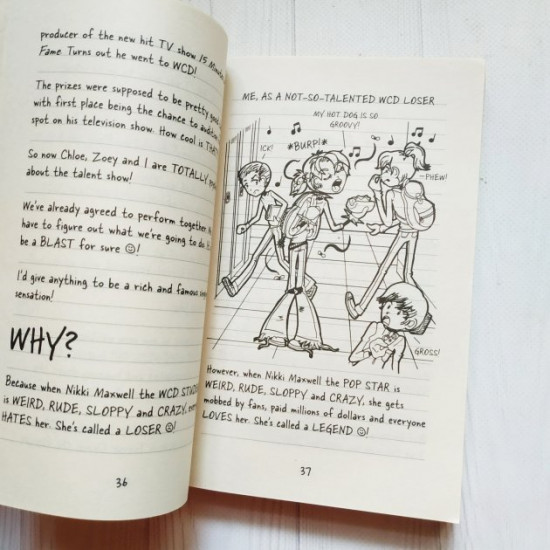 producer of the new hit TV show 15 Minutes
Fame. Turns out he went to WCD!
The prizes were supposed to be pretty good,
with first place being the chance to audition
spot on his television show. How cool is THAT
So now Chloe, Zoey and I are TOTALLY
about the talent show!
We've already agreed to perform together.
have to figure out what we're going to do.
be a BLAST for sure ☺!
I'd give anything to be a rich and famous
sensation!
WHY?
Because when Nikki Maxwell the WCD
is WEIRD, RUDE, SLOPPY and CRAZY,
HATES her. She's called a LOSER ☹!
36
ME, AS A NOT-SO-TALENTED WCD LOSER
MY HOT DOG IS SO
GROOVY!
ICK!
*BURP!*
PHEW!
GROSS!
However, when Nikki Maxwell the POP STAR is
WEIRD, RUDE, SLOPPY and CRAZY, she gets
mobbed by fans, paid millions of dollars and everyone
LOVES her. She's called a LEGEND ☺!
37